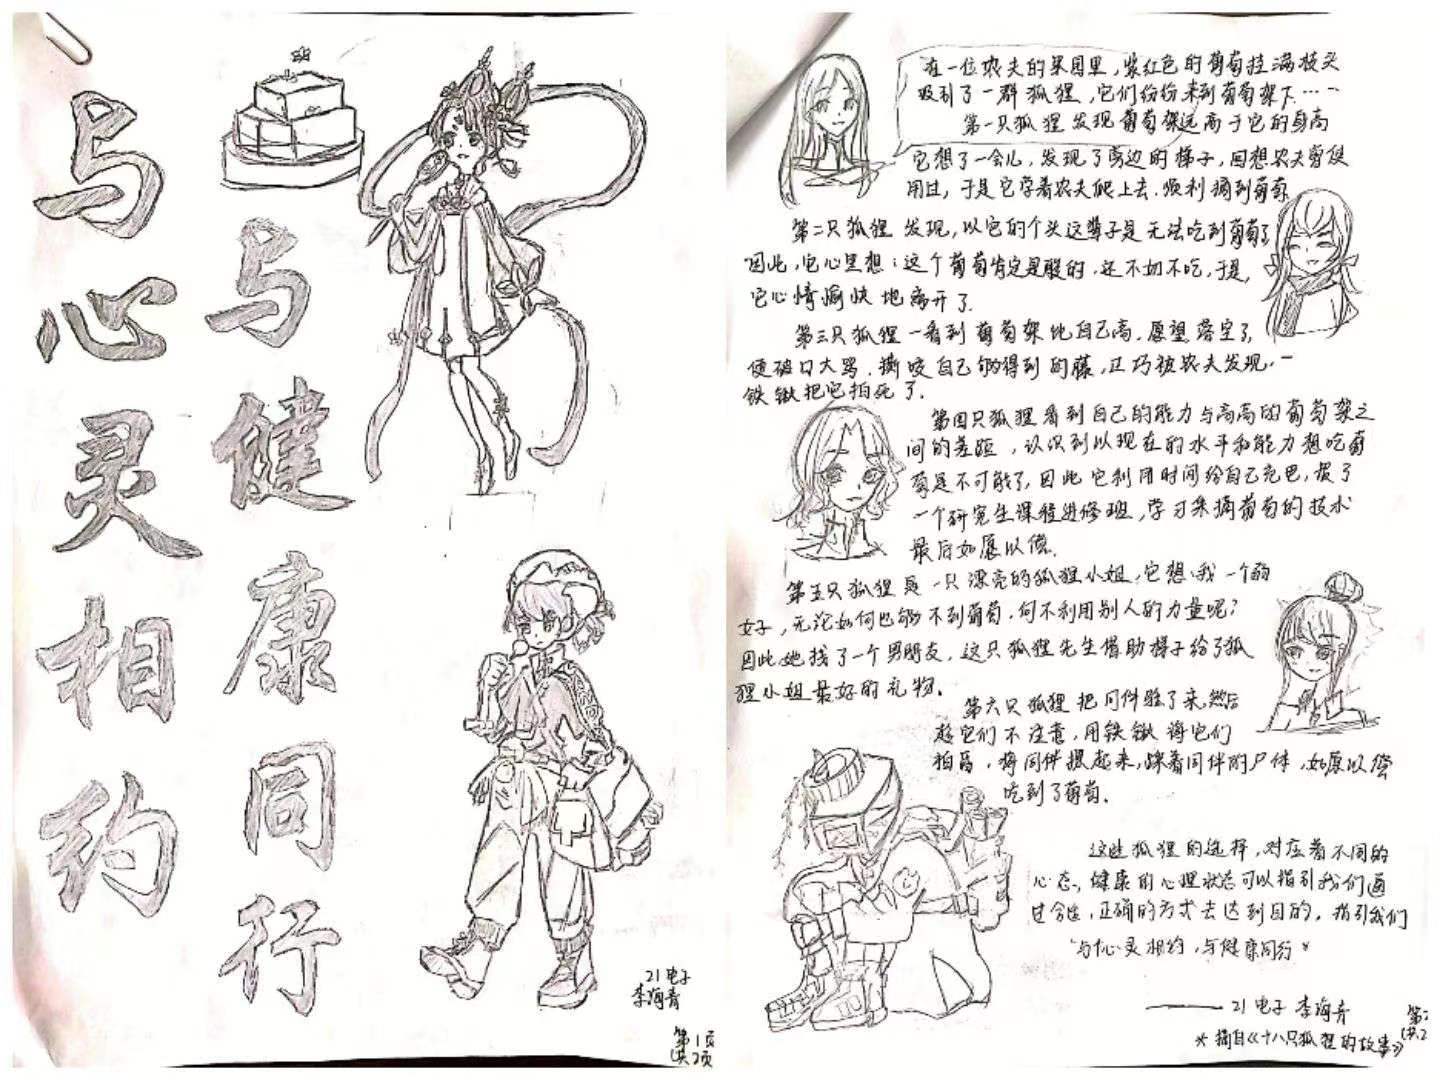 与心灵相约
与健康同行
21电子
李海青
第1页
共2页
在一位农夫的果园里，紫红色的葡萄挂满枝头
吸引了一群狐狸，它们纷纷来到葡萄架下……
第一只狐狸发现葡萄架远高于它的身高
它想了一会儿，发现了旁边的梯子，回想农夫曾使
用过，于是它学着农夫爬上去，顺利摘到葡萄
第二只狐狸发现，以它的个头这辈子是无法吃到葡萄了
因此，它心里想：这个葡萄肯定是酸的，还不如不吃，于是，
它心情愉快地离开了.
第三只狐狸一看到葡萄架比自己高，愿望落空了，
便破口大骂，撕咬自己够得到的藤，正巧被农夫发现，一
铁锹把它拍死了.
第四只狐狸看到自己的能力与高高的葡萄架之
间的差距，认识到以现在的水平和能力想吃葡
萄是不可能了，因此它利用时间给自己充巴，报了
一个研究生课程进修班，学习采摘葡萄的技术
最后如愿以偿.
第五只狐狸是一只漂亮的狐狸小姐，它想，我一个弱
女子，无论如何也够不到葡萄，何不利用别人的力量呢？
因此她找了一个男朋友，这只狐狸先生借助梯子给了狐
狸小姐最好的礼物.
第六只狐狸把同伴骗了来，然后
趁它们不注意，用铁锹将它们
拍昏，将同伴摞起来，踩着同伴的尸体，如愿以偿
吃到了葡萄.
这些狐狸的选择，对应着不同的
心态，健康的心理状态可以指引我们通
过合适，正确的方式去达到目的，指引我们
“与心灵相约，与健康同行”
——21电子 李海青
*摘自《十八只狐狸的故事》
第2
共2